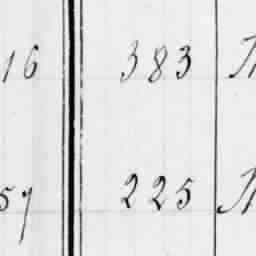 16 383
57 225